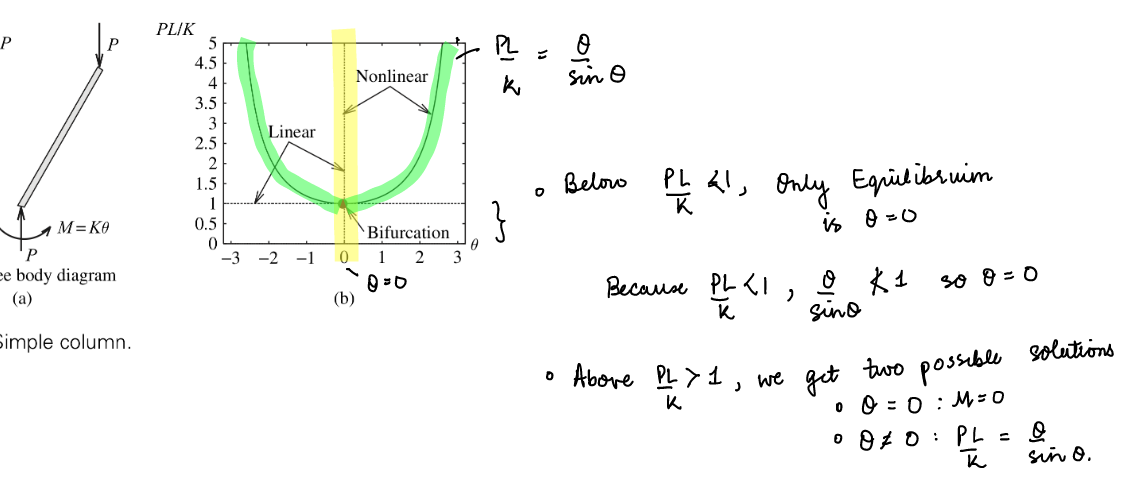 P
P
M = Kθ
P
ee body diagram
(a)
Simple column.
PL/K
5
4.5
4
3.5
3
2.5
2
1.5
1
0.5
0
−3 −2 −1 0 1 2 3 θ
Nonlinear
Linear
Bifurcation
(b)
θ=0
PL/K = θ/sin θ
}
∘ Below PL/K <1, Only Equilibrium
is θ=0
Because PL/K <1, θ/sinθ ≮ 1 so θ = 0
∘ Above PL/K > 1, we get two possible solutions
∘ θ = 0 : M=0
∘ θ ≠ 0 : PL/K = θ/sin θ.